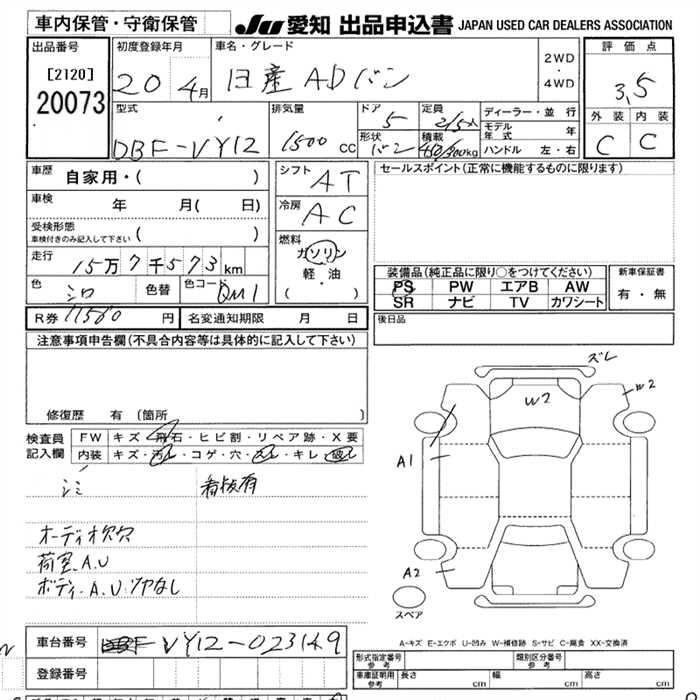 車内保管・守衛保管
JU 愛知 出品申込書 JAPAN USED CAR DEALERS ASSOCIATION
出品番号
[2120]
20073
初度登録年月
20 4月
車名・グレード
日産 ADバン
2WD
・
4WD
評価点
3.5
外装 内装
C C
型式
DBF-VY12
排気量
1500 cc
ドア
5
形状
バン
定員
2/5人
積載
450/300kg
ディーラー・並行
モデル年式 年
ハンドル 左・右
車歴
自家用・( )
車検
年 月( 日)
受検形態
車検付きのみ記入して下さい ( )
走行
15万7千573km
色
シロ
色替
色コード
QM1
シフト
AT
冷房
AC
燃料
ガソリン
軽・油
( ・ )
セールスポイント(正常に機能するものに限ります)
装備品(純正品に限り○をつけてください)
PS PW エアB AW
SR ナビ TV カワシート
新車保証書
有・無
後日品
R券 11560 円
名変通知期限 月 日
注意事項申告欄(不具合内容等は具体的に記入して下さい)
修復歴 有(箇所 )
検査員
記入欄
FW キズ・飛石・ヒビ割・リペア跡・X要
内装 キズ・汚レ・コゲ・穴・スレ・キレ・破レ
シミ
看板有
オーディオ欠欠
荷室A.U
ボディ・A.U.ツヤなし
ズレ
W2
W2
A1
A2
スペア
A-キズ E-エクボ U-凹み W-補修跡 S-サビ C-腐食 XX-交換済
車台番号
DBF-VY12-023149
登録番号
形式指定番号
参考
類別区分番号
参考
車庫証明用
参考
長さ cm
幅 cm
高さ cm